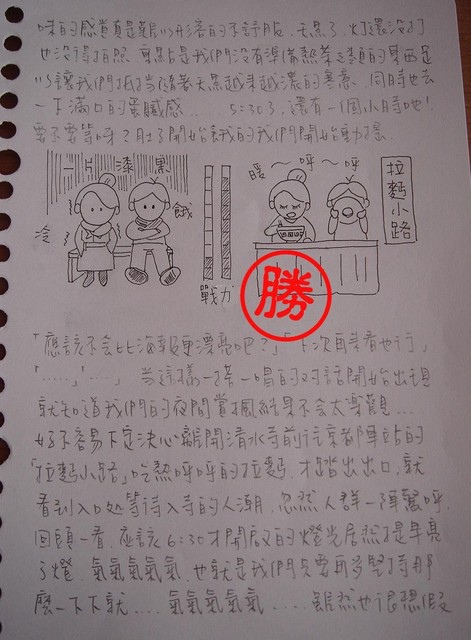 味的感覺真是難以形容的不舒服. 天黑了, 燈還沒打
也沒得拍照. 重點是我們沒有準備熱茶之類的東西足
以讓我們抵擋隨著天黑越來越濃的寒意, 同時也去
一下滿口的蛋膩感.... 5:30了, 還有一個小時吔!
要不要等呀? 肚子開始餓的我們開始動搖.
一片漆黑
冷
餓
戰力
暖~呼~呼
拉麵小路
勝
「應該不會比海報更漂亮吧?」「下次再來看也行」
「.....」「.....」 當這樣一搭一唱的对話開始出現
就知道我們的夜間賞楓結果不會太樂觀...
好不容易下定決心離開清水寺前往京都車站的
「拉麵小路」吃熱呼呼的拉麵, 才踏出出口, 就
看到入口処等待入寺的人潮, 忽然人群一陣驚呼.
回頭一看, 应該6:30才開啟的燈光居然提早亮
了燈. 氣氣氣氣氣, 也就是我們只要再多堅持那
麼一下下就.... 氣氣氣氣氣..... 雖然也很想假